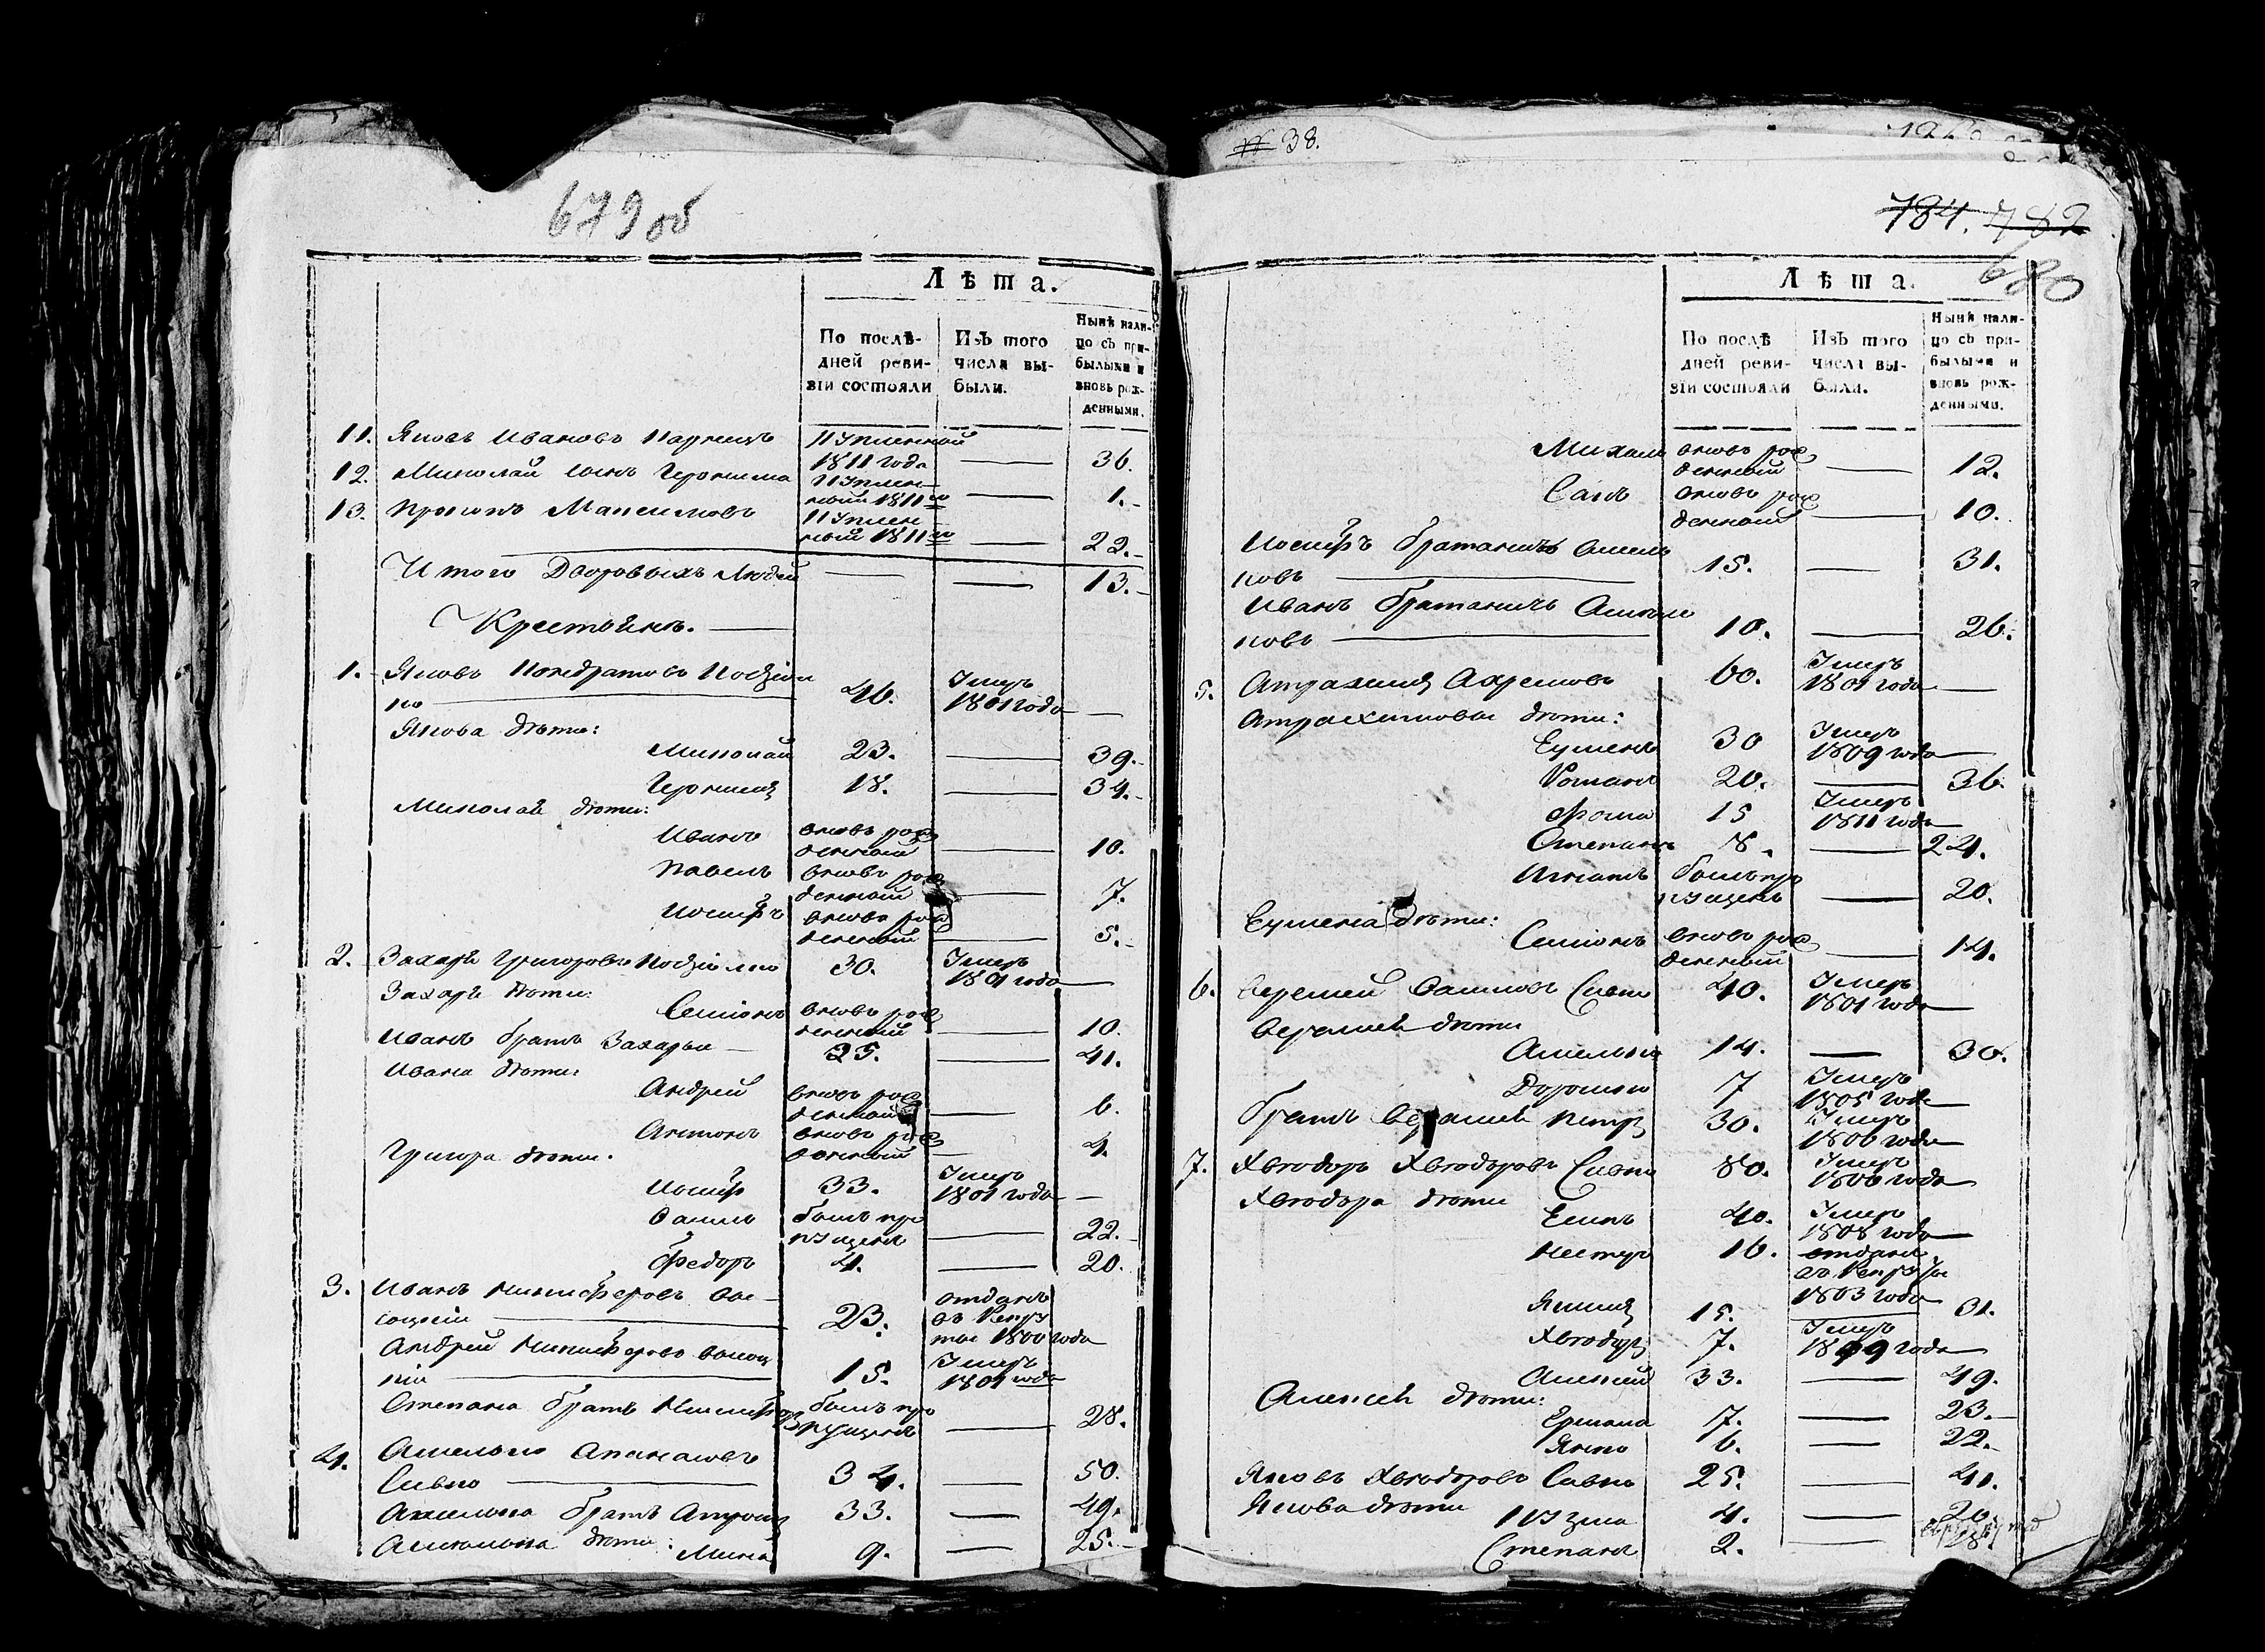 679 об
Лѣта.
По послѣ-
дней реви-
зіи состояли
Изъ того
числа вы-
были.
Нынѣ нали-
цо съ при-
былыми и
вновь рож-
денными.
11. Яковъ Ивановъ Купленной
1811 года — 36.
12. Миколай сынъ Куплен-
ный 1811 го — 1.
13. Прокопъ Максимовъ Куплен
ный 1811 го — 22.
Итого Дворовыхъ Людей — — 13.
Крестьянъ. —
1. Яковъ Кондратовъ
ко — 46. Умеръ
1801 года —
Якова дѣти:
Миколай 23. — 39.
18. — 34.
Миколая дѣти:
Иванъ вновь рож
денный — 10.
Павелъ вновь рож
денный — 7.
Иосифъ вновь рож
денный — 5.
2. Захаръ Григоровъ 30. Умеръ
1801 года —
Захара дѣти:
Семіонъ вновь рож
денный — 10.
Иванъ братъ Захарья — 25. — 41.
Ивана дѣти:
Андрей вновь рож
денный — 6.
Антонъ вновь рож
денный — 4.
Григора дѣти:
Иосифъ 33. Умеръ
1801 года —
Василь былъ про
пущенъ — 22.
Федоръ 4. — 20.
3. Иванъ Никифоровъ Вы-
соцкій — 23. отданъ
въ Рекру
ты 1800 года
Андрей Никифоровъ Высоц
кій — 15. Умеръ
1801 года
Степанъ братъ былъ про
пущенъ — 28.
4. Омелько Апанасовъ
Сивко — 34. — 50.
Омелька братъ 33. — 49.
Омелька дѣти: Мина 9. — 25.
№ 38.
784. 782
680
Лѣта.
По послѣ
дней реви-
зіи состояли
Изъ того
числа вы-
были.
Нынѣ нали-
цо съ при-
былыми и
вновь рож-
денными.
Михаил вновь рож
денный — 12.
вновь рож
денный — 10.
Иосифъ братаничъ Омель
ковъ — 15. — 31.
Иванъ братаничъ Омель
ковъ — 10. — 26.
5. 60. Умеръ
1801 года —
дѣти:
30 Умеръ
1809 года —
Романъ 20. — 36.
Фома 15 Умеръ
1811 года —
Степанъ 8. — 24.
Игнатъ былъ про
пущенъ — 20.
дѣти:
Семіонъ вновь рож
денный — 14.
6. Еремей Сивко 40. Умеръ
1801 года
Еремея дѣти
Омелько 14. — 30.
Дорошко 7 Умеръ
1805 года
братъ Еремея Петръ 30. Умеръ
1806 года
7. Хведоръ Хведоровъ Сивко 80. Умеръ
1806 года
Хведора дѣти
40. Умеръ
1808 года
Нестеръ 16. отданъ
въ Рекруты
1803 года
15. — 31.
Хведоръ 7. Умеръ
1809 года
Алексей 33. — 49.
Алексея дѣти:
Ермола 7. — 23.
Янко 6. — 22.
Яковъ Хведоровъ Сивко 25. — 41.
Якова дѣти
Кузма 4. — 20.
Степанъ 2. —